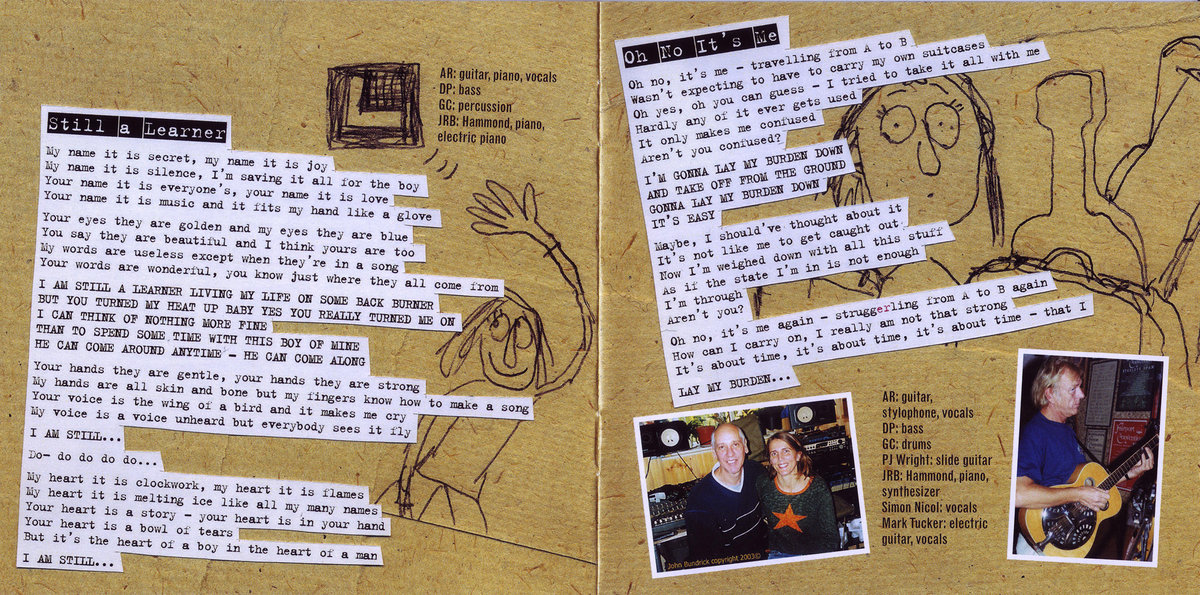 Still a Learner
My name it is secret, my name it is joy
My name it is silence, I'm saving it all for the boy
Your name it is everyone's, your name it is love
Your name it is music and it fits my hand like a glove
Your eyes they are golden and my eyes they are blue
You say they are beautiful and I think yours are too
My words are useless except when they're in a song
Your words are wonderful, you know just where they all come from
I AM STILL A LEARNER LIVING MY LIFE ON SOME BACK BURNER
BUT YOU TURNED MY HEAT UP BABY YES YOU REALLY TURNED ME ON
I CAN THINK OF NOTHING MORE FINE
THAN TO SPEND SOME TIME WITH THIS BOY OF MINE
HE CAN COME AROUND ANYTIME - HE CAN COME ALONG
Your hands they are gentle, your hands they are strong
My hands are all skin and bone but my fingers know how to make a song
Your voice is the wing of a bird and it makes me cry
My voice is a voice unheard but everybody sees it fly
I AM STILL...
Do- do do do do...
My heart it is clockwork, my heart it is flames
My heart it is melting ice like all my many names
Your heart is a story - your heart is in your hand
Your heart is a bowl of tears
But it's the heart of a boy in the heart of a man
I AM STILL...
AR: guitar, piano, vocals
DP: bass
GC: percussion
JRB: Hammond, piano,
electric piano
Oh No It's Me
Oh no, it's me - travelling from A to B
Wasn't expecting to have to carry my own suitcases
Oh yes, oh you can guess - I tried to take it all with me
Hardly any of it ever gets used
It only makes me confused
Aren't you confused?
I'M GONNA LAY MY BURDEN DOWN
AND TAKE OFF FROM THE GROUND
GONNA LAY MY BURDEN DOWN
IT'S EASY
Maybe, I should've thought about it
It's not like me to get caught out
Now I'm weighed down with all this stuff
As if the state I'm in is not enough
I'm through
Aren't you?
Oh no, it's me again - struggerling from A to B again
How can I carry on, I really am not that strong
It's about time, it's about time, it's about time - that I
LAY MY BURDEN...
AR: guitar,
stylophone, vocals
DP: bass
GC: drums
PJ Wright: slide guitar
JRB: Hammond, piano,
synthesizer
Simon Nicol: vocals
Mark Tucker: electric
guitar, vocals
John Bundrick copyright 2003©